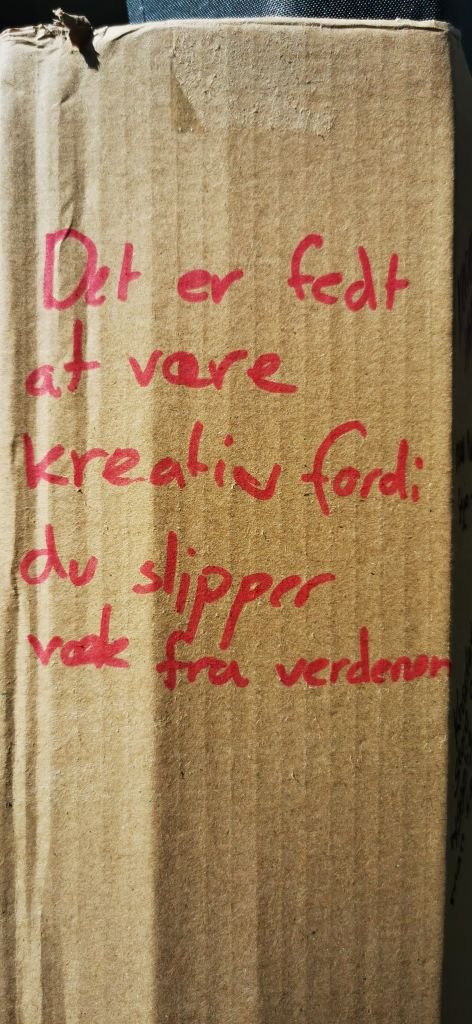 Det er fedt
at være
kreativ fordi
du slipper
væk fra verdenen